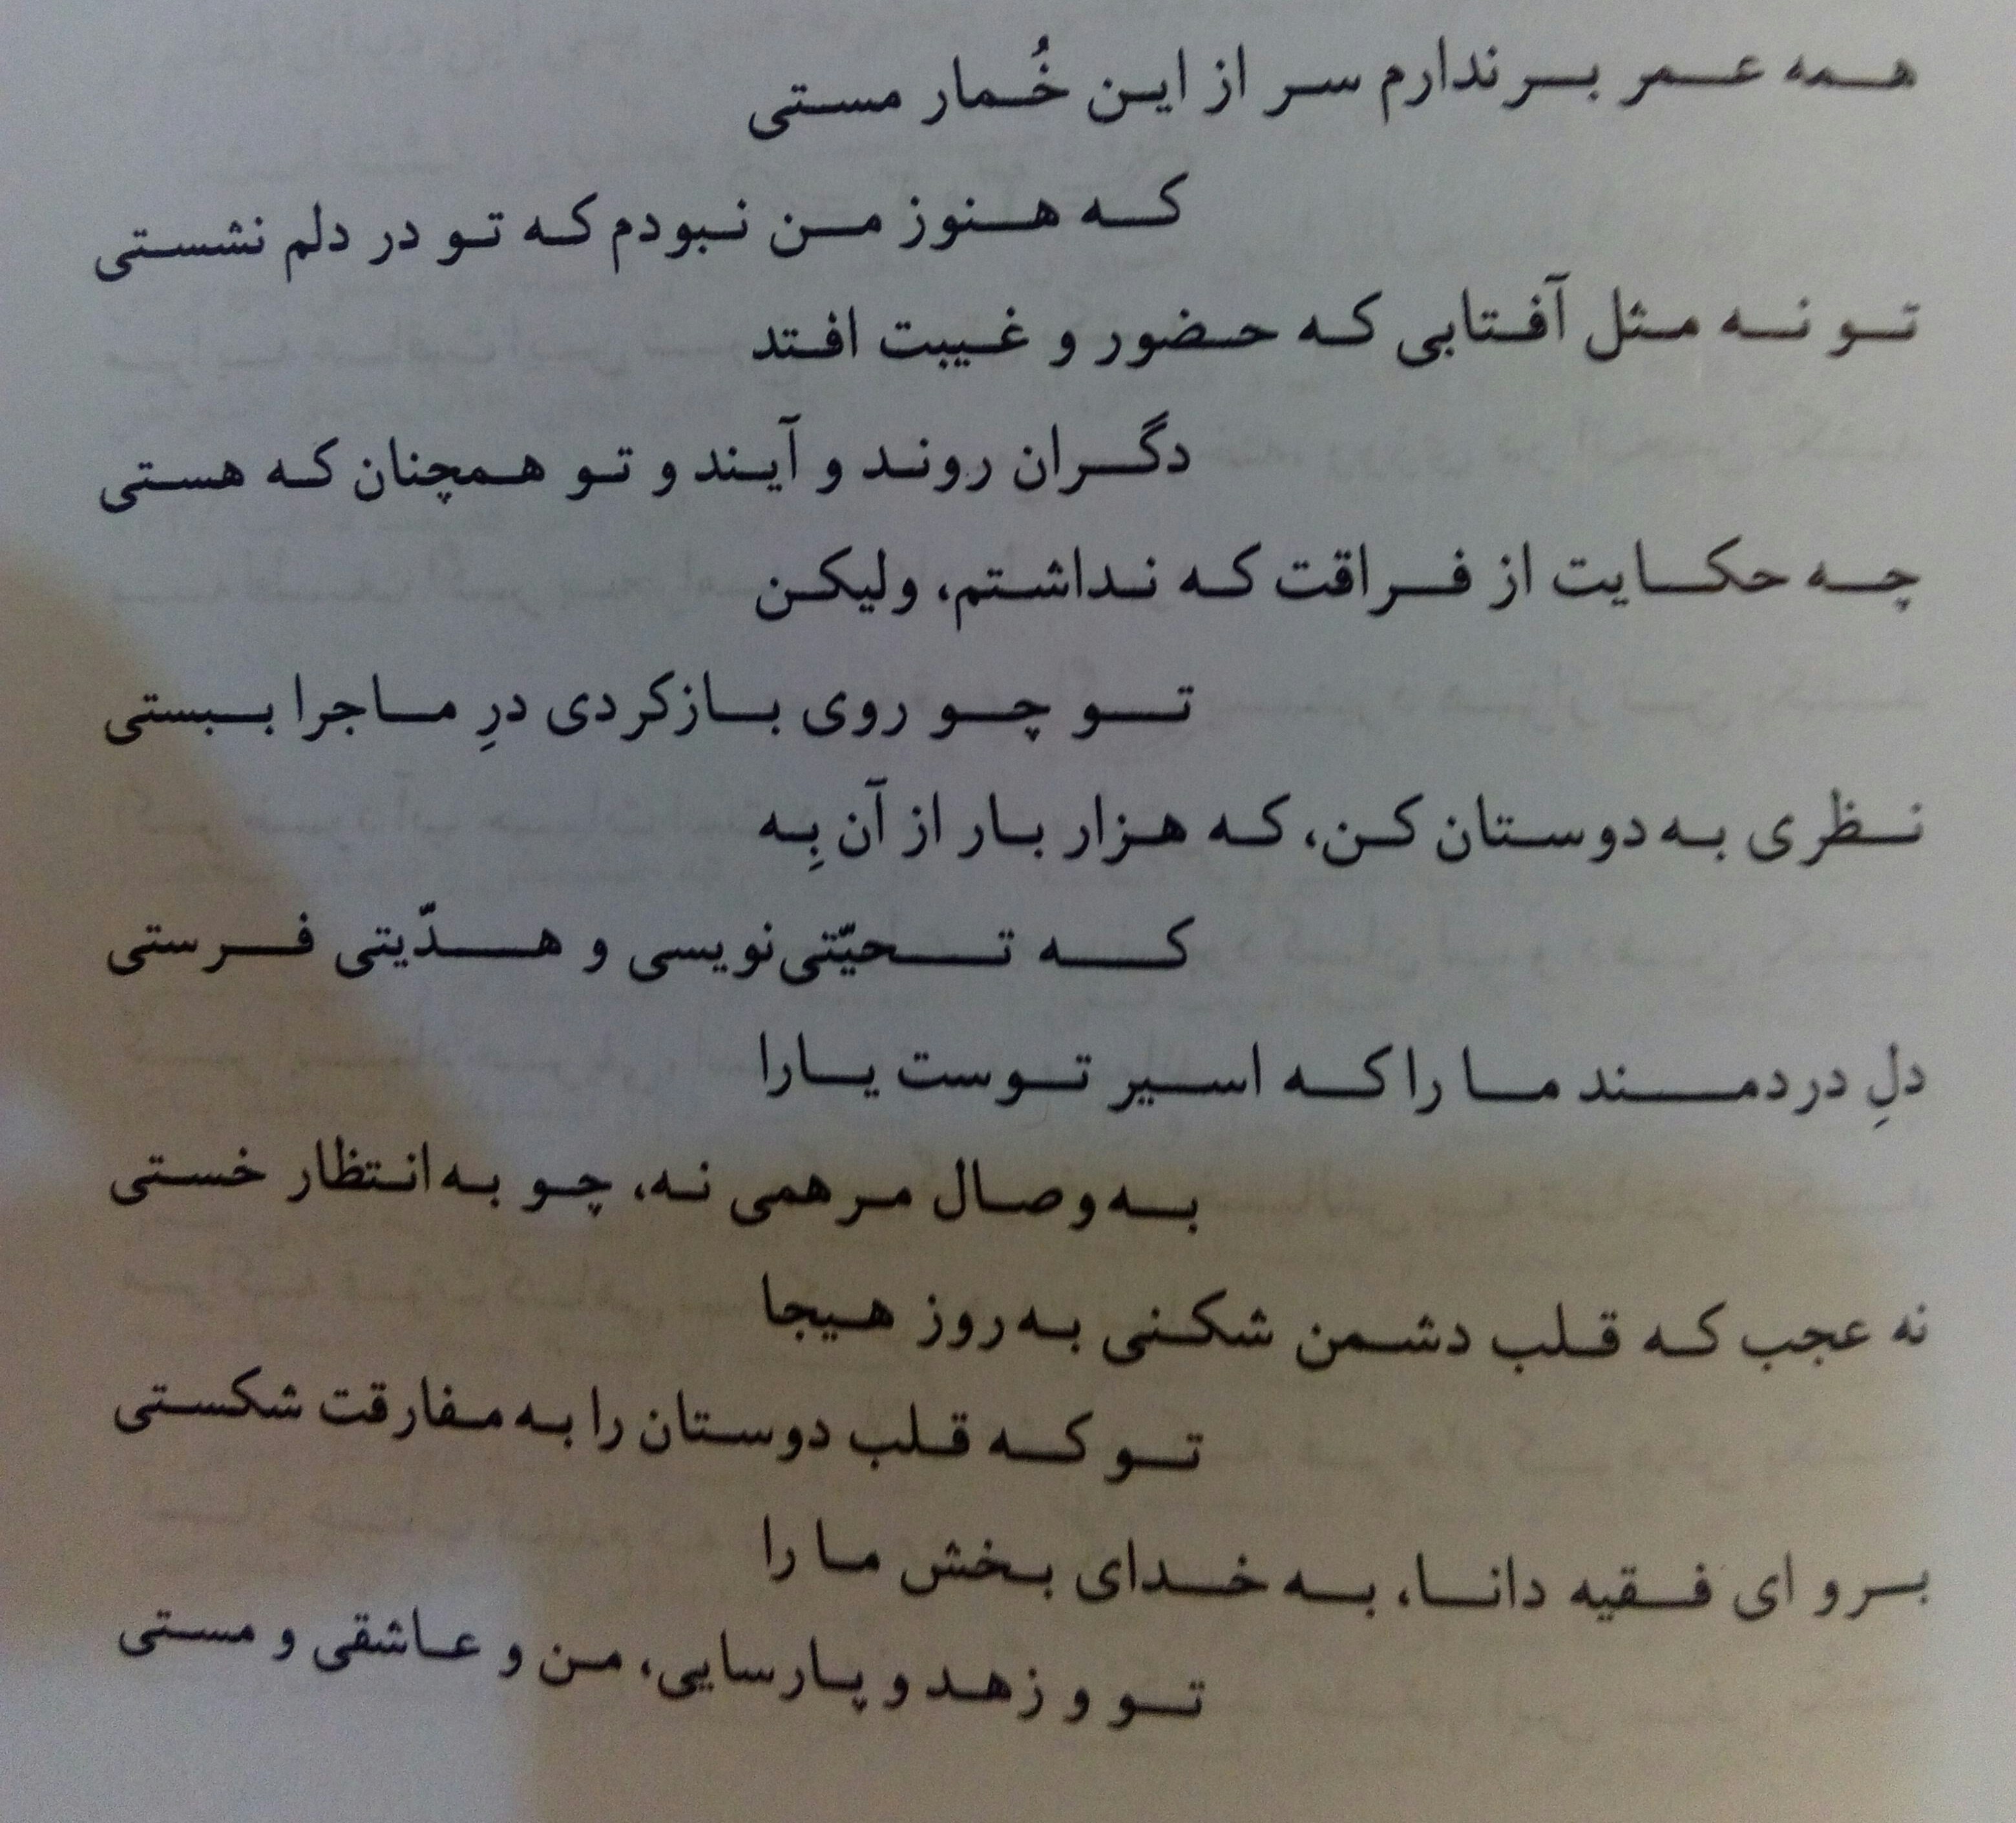 همه عمر برندارم سر از این خُمار مستی
که هنوز من نبودم که تو در دلم نشستی
تو نه مثل آفتابی که حضور و غیبت افتد
دگران روند و آیند و تو همچنان که هستی
چه حکایت از فراقت که نداشتم، ولیکن
تو چو روی بازکردی درِ ماجرا ببستی
نظری به دوستان کن، که هزار بار از آن بِه
که تحیّتی نویسی و هدّیتی فرستی
دلِ دردمند ما را که اسیر توست یارا
به وصال مرهمی نه، چو به انتظار خستی
نه عجب که قلب دشمن شکنی به روز هیجا
تو که قلب دوستان را به مفارقت شکستی
برو ای فقیه دانا، به خدای بخش ما را
تو و زهد و پارسایی، من و عاشقی و مستی